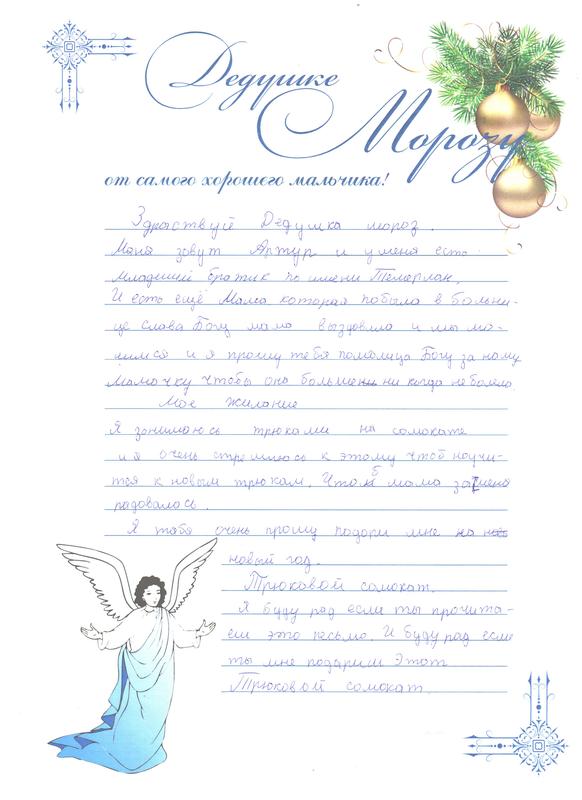 Дедушке
Морозу
от самого хорошего мальчика!
Здраствуй Дедушка мороз.
Меня зовут Артур и у меня есть
младший братик по имени Темерлан.
И есть ещё Мама которая побыла в больни-
це слава Богу мама выздовила и мы мо-
лимся и я прошу тебя помолица Богу за мому
мамочку чтобы она больше ни когда не болела.
Мое жилание
Я занимаюсь трюками на самокате
и я очень стремлюсь к этому чтоб научи-
тся к новым трюкам. Чтоб мама за меня
радовалась.
Я тебя очень прошу подари мне на
новый год.
Трюковой самокат.
Я буду рад если ты прочита-
еш это песьмо. И буду рад если
ты мне подариш Этот
Трюковой самокат.